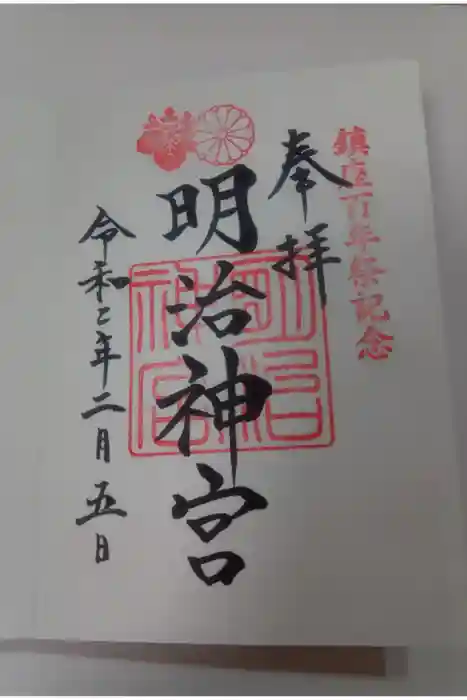 鎮座百年祭記念
奉拝
明治神宮
令和二年二月五日
明治神宮